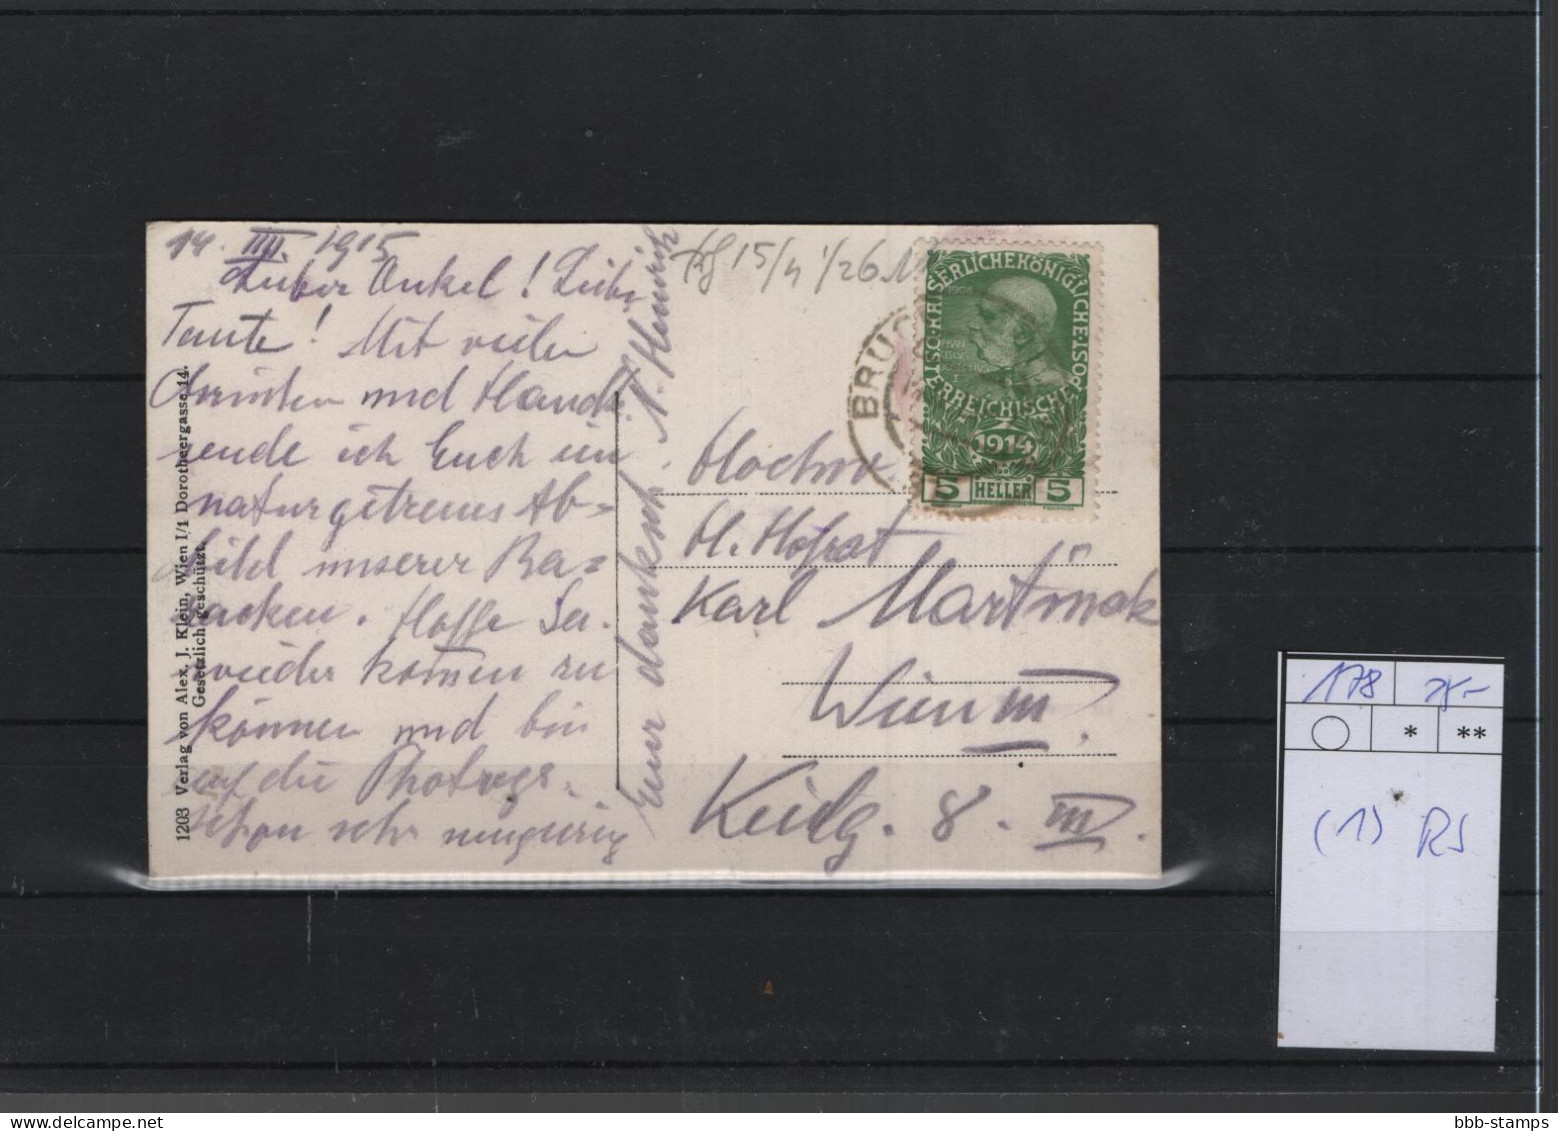 14. IIII. 1915
Lieber Onkel! Liebe
Tante! Mit vielen
und Hand
sende ich Euch ein
naturgetreues Ab=
bild unserer Ba=
racken. Hoffe Sie
wieder kommen zu
können und bin
auf die Photogr.
schon sehr neugierig
Euer dankesch. N. Heinrich
15/4 1/26
Hochw.
H. Hofrat
Karl Martinak
Wien III.
Keilg. 8. III.
1203 Verlag von Alex. J. Klein, Wien I/1 Dorotheergasse 14.
Gesetzlich geschützt.
BRUCK
KAISERLICHE KÖNIGLICHE
ÖSTERREICHISCHE POST
1914
5 HELLER 5
178
* **
(1) RS
bbb-stamps